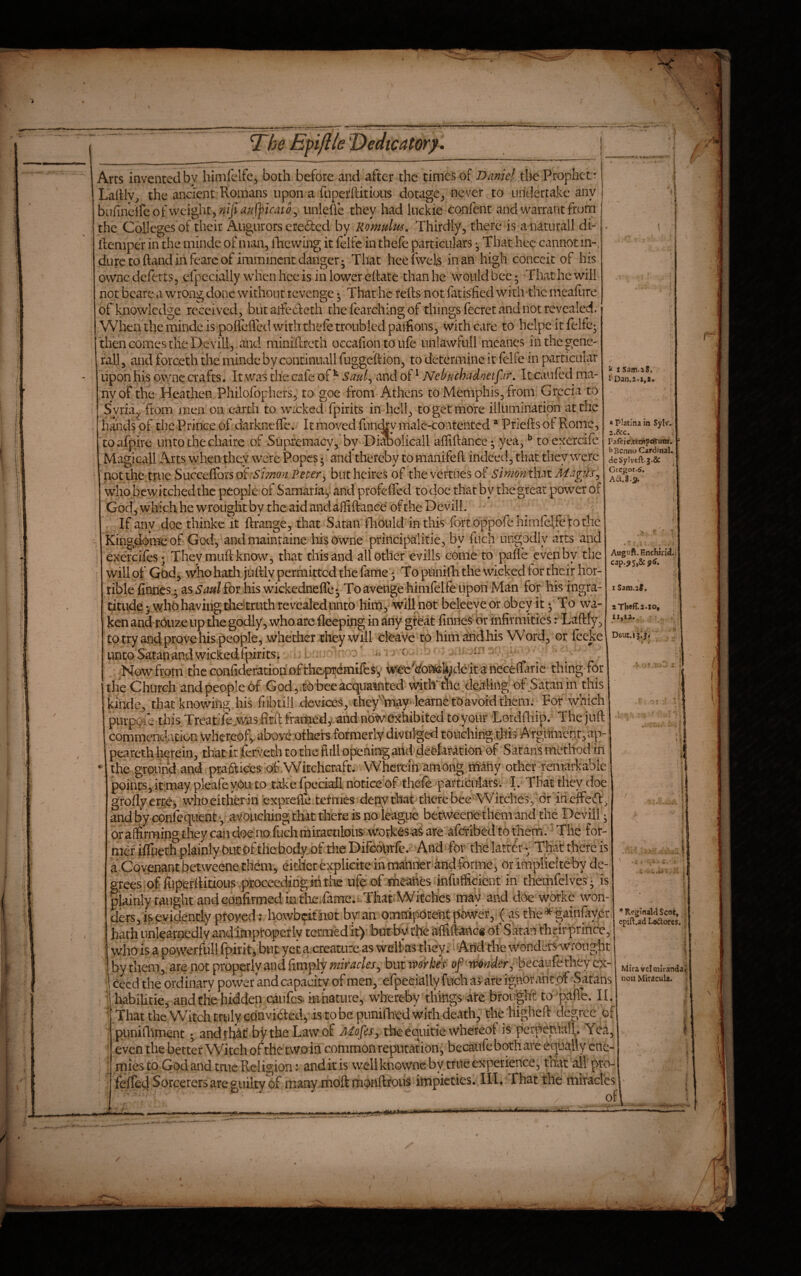 The Epistle Dedicatory.
Arts invented by himselfe, both before and after the times of Daniel the Prophet:
Lastly, the ancient Romans upon a superstitious dotage, never to undertake any
businesse of weight, nisi auspicato, unlesse they had luckie consent and warrant from
the Colleges of their Augurors erected by Romulus. Thirdly, there is a naturall di-
stemper in the minde of man, shewing it selfe in these particulars; That hee cannot in-
dure to stand in feare of imminent danger; That hee swels in an high conceit of his
owne deserts, especially when hee is in lower estate than he would bee; That he will
not beare a wrong done without revenge; That he rests not satisfied with the measure
of knowledge received, but affecteth the searching of things secret and not revealed.
When the minde is possessed with these troubled passions, with care to helpe it selfe;
then comes the Devill, and ministreth occasion to use unlawfull meanes in the gene-
rall, and forceth the minde by continuall suggestion, to determine it selfe in particular
upon his owne crafts. It was the case of k Saul, and of l Nebuchadnetsar. It caused ma-
ny of the Heathen Philosophers, to goe from Athens to Memphis, from Grecia to
Syria, from men on earth to wicked spirits in hell, to get more illumination at the
hands of the Prince of darknesse. It moved sundry male-contented a Priests of Rome,
to aspire unto the chaire of Supremacy, by Diabolicall assistance; yea, b to exercise
Magicall Arts when they were Popes; and thereby to manifest indeed, that they were
not the true Successors of Simon Peter, but heires of the vertues of Simon that Magus,
who bewitched the people of Samaria, and professed to doe that by the great power of
God, which he wrought by the aid and assistance of the Devill.
If any doe thinke it strange, that Satan should in this sort oppose himselfe to the
Kingdome of God, and maintaine his owne principalitie, by such ungodly arts and
exercises; They must know, that this and all other evills come to passe even by the
will of God, who hath justly permitted the same; To punish the wicked for their hor-
rible sinnes; as Saul for his wickednesse; To avenge himselfe upon Man for his ingra-
titude; who having the truth revealed unto him, will not beleeve or obey it; To wa-
ken and rouze up the godly, who are sleeping in any great sinnes or infirmities: Lastly,
to try and prove his people, whether they will cleave to him and his Word, or seeke
unto Satan and wicked spirits.
Now from the consideration of the premises, wee conclude it a necessarie thing for
the Church and people of God, to bee acquainted with the dealing of Satan in this
kinde, that knowing his subtill devices, they may learne to avoid them. For which
purpose this Treatise was first framed, and now exhibited to your Lordship. The just
commendation whereof, above others formerly divulged touching this Argument, ap-
peareth herein, that it serveth to the full opening and declaration of Satans method in
the ground and practices of Witchcraft. Wherein among many other remarkable
points, it may please you to take speciall notice of these particulars. I. That they doe
grosly erre, who either in expresse termes deny that there bee Witches, or in effect,
and by consequent; avouching that there is no league betweene them and the Devill;
or affirming they can doe no such miraculous workes as are ascribed to them. The for-
mer issueth plainly out of the body of the Discourse. And for the latter; That there is
a Covenant betweene them, either explicite in manner and forme, or implicite by de-
grees of superstitious proceeding in the use of meanes insufficient in themselves; is
plainly taught and confirmed in the same. That Witches may and doe worke won-
ders, is evidently proved: howbeit not by an omnipotent power, (as the * gainsayer
hath unlearnedly and improperly termed it) but by the assistance of Satan their prince,
who is a powerfull spirit, but yet a creature as well as they. And the wonders wrought
by them, are not properly and simply miracles, but workes of wonder, because they ex-
ceed the ordinary power and capacity of men, especially such as are ignorant of Satans
habilitie, and the hidden causes in nature, whereby things are brought to passe. II.
That the Witch truly convicted, is to be punished with death, the highest degree of
punishment; and that by the Law of Moses, the equitie whereof is perpetuall. Yea,
even the better Witch of the two in common reputation, because both are equally ene-
mies to God and true Religion: and it is well knowne by true experience, that all pro-
fessed Sorcerers are guilty of many most monstrous impieties. III. That the miracles
of
k 1 Sam.28.
l Dan.2.1,2.
a Platina in Sylv.
2.&c.
b Benno Cardinal.
de Sylvest.3.&
Gregor.6.
Act.8.9.
August. Enchirid.
cap.95,& 96.
1 Sam.28.
2 Thess.2.10,
11,12.
Deut.13.3.
* Reginald Scot,
epist.ad Lectores.
Mira vel miranda,
non Miracula.